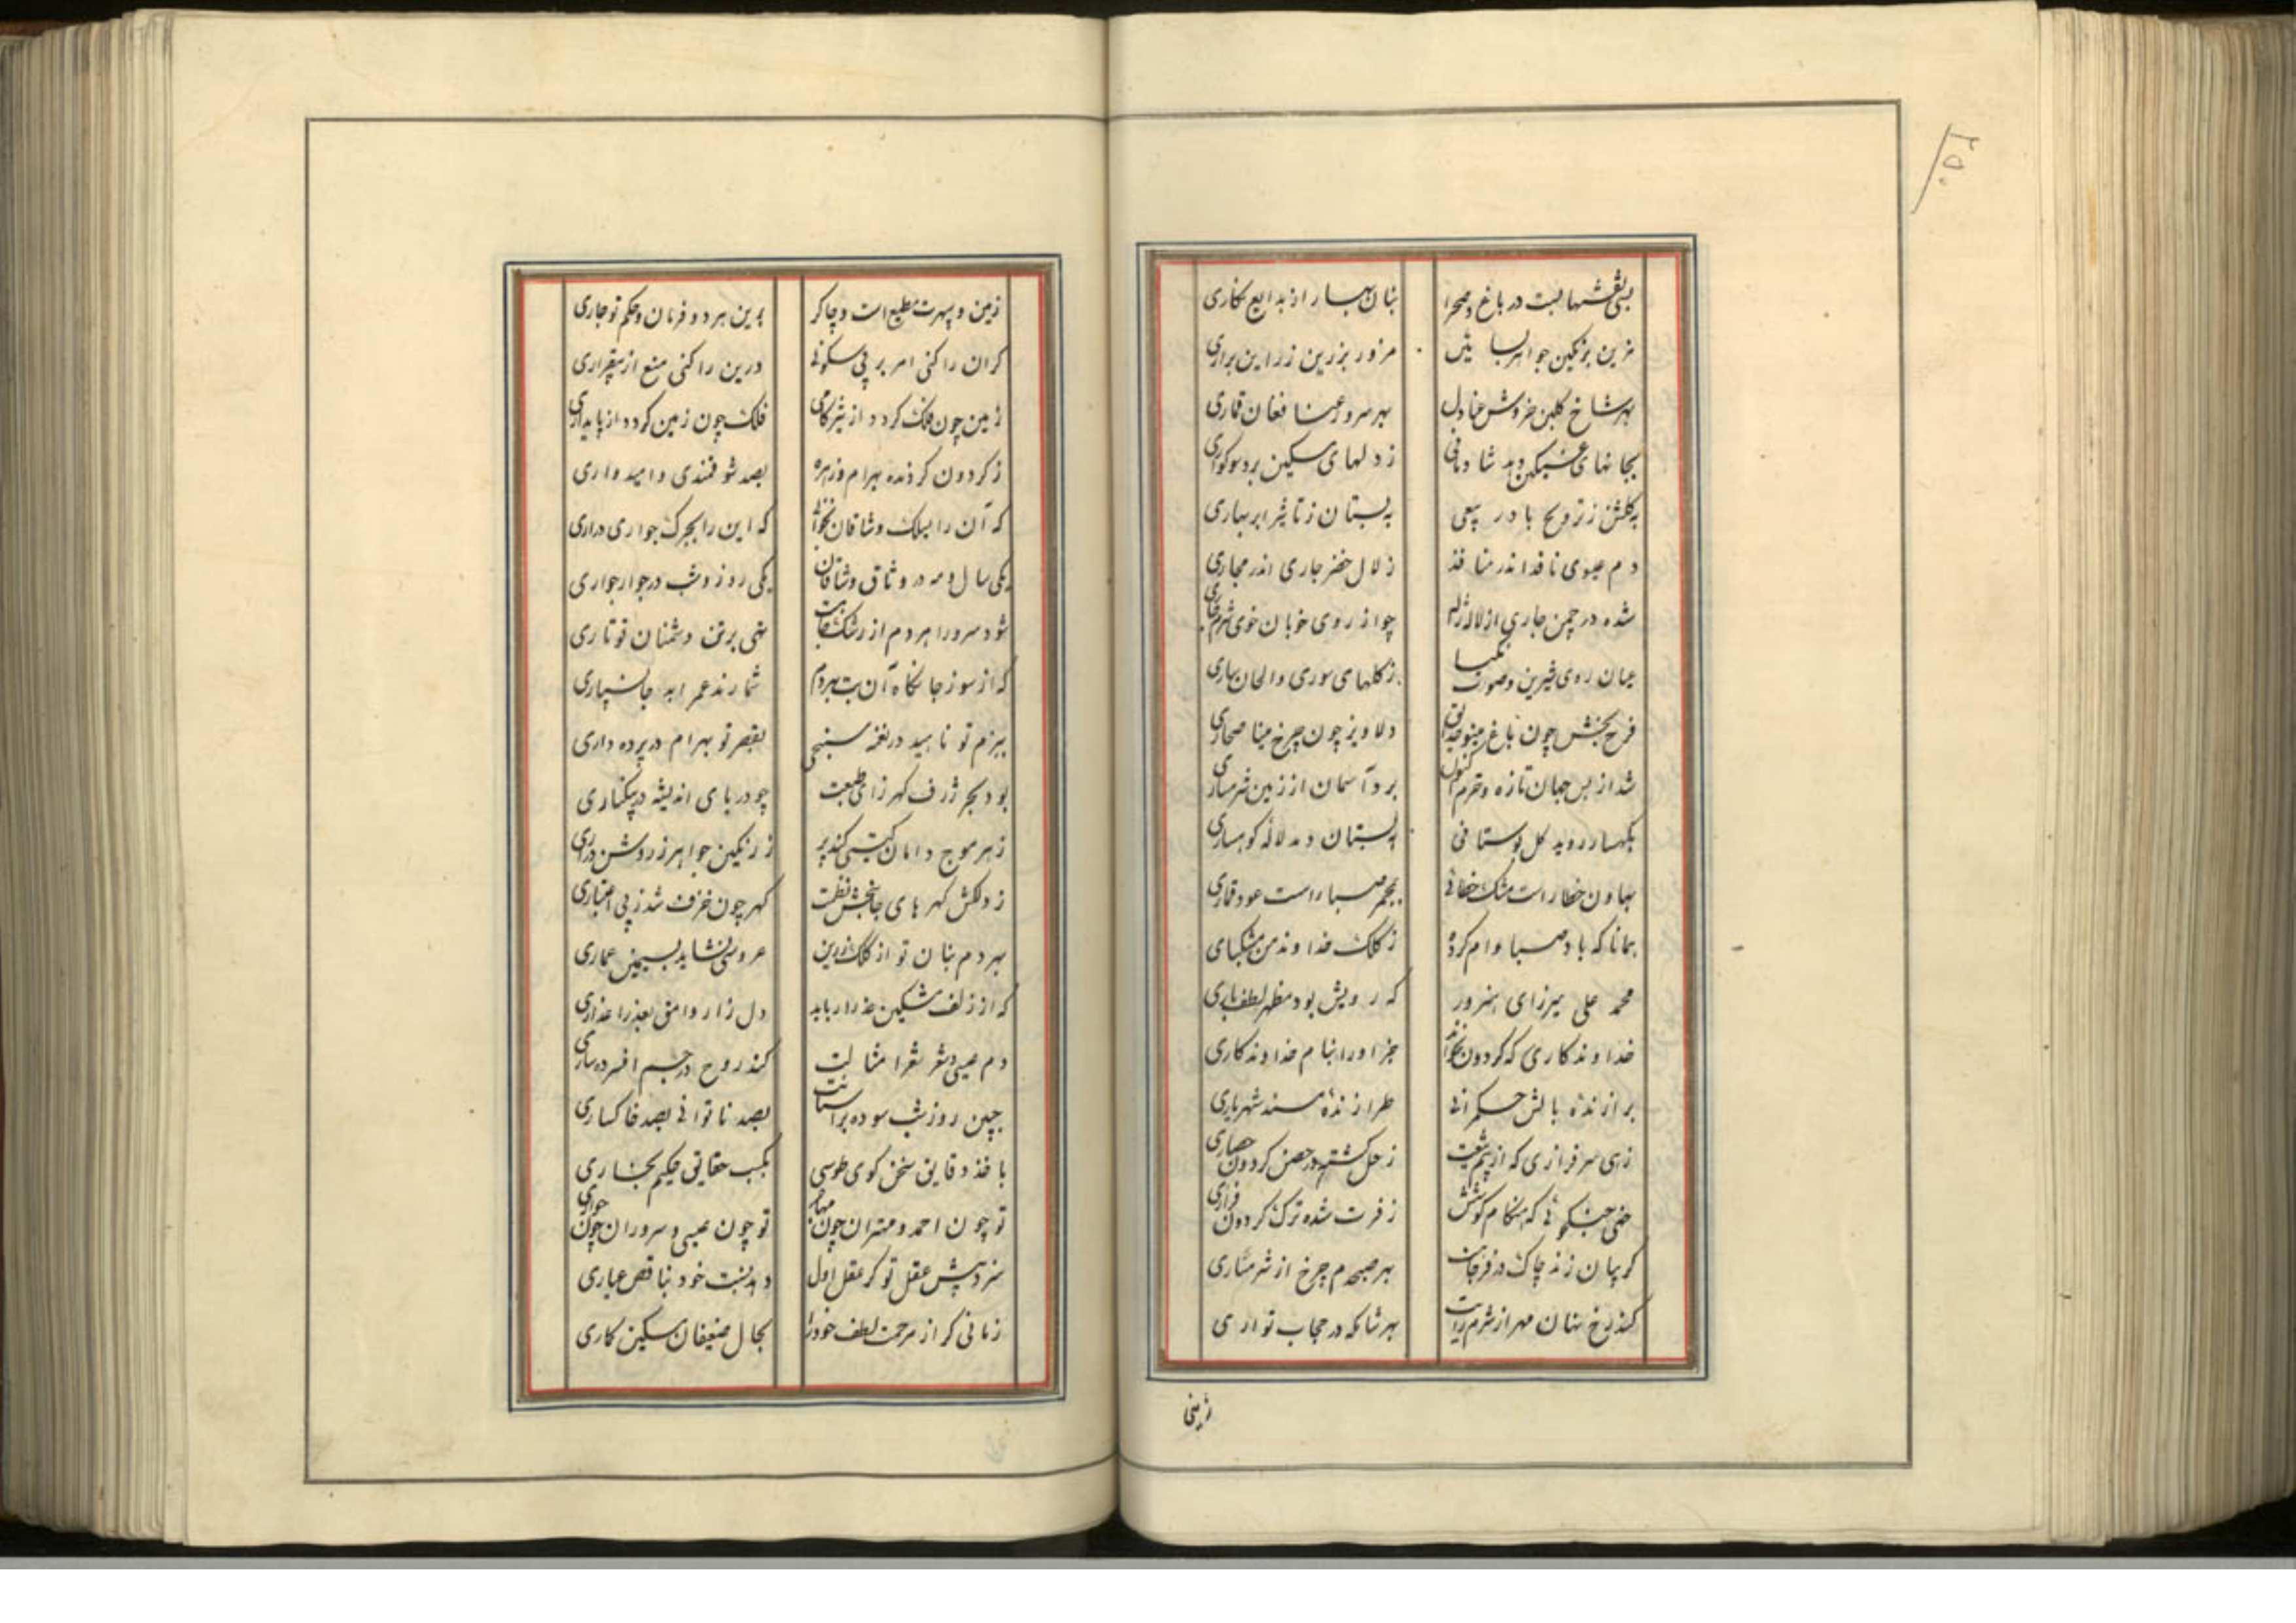 ۲۵۰
بسی نقشها بست در باغ و صحرا بنان بهار از بدایع نکاری
مزین برنکین جواهر بساتین مزور بزرین زر این براری
بهر شاخ کلبن خروش عنادل بهر سرو رعنا فغان قماری
بجانهای غمکین دهد شادمانی ز دلهای مسکین برد سوکواری
به کلشن ز ترویح باد ربیعی به بستان ز تاثیر ابر بهاری
دم عیسوی نافذ اندر منافذ زلال خضر جاری اندر مجاری
شده در چمن جاری از لاله ژاله چو از روی خوبان خوی شرمساری
عیان روی شیرین و صوت نکیسا ز کلهای سوری و الحان ساری
فرح بخش چون باغ مینو حدایق دلاویز چون چرخ مینا صحاری
شد از بس جهان تازه و خرم اکنون برد آسمان از زمین شرمساری
بکهسار روید کل بوستانی به بستان دمد لاله کوهساری
بهاون خطا راست مشک خطائی بمجمر صبا راست عود قماری
همانا که باد صبا وام کرده ز کلک خداوند من مشکباری
محمد علی میرزای هنرور که رویش بود مظهر لطف باری
خداوندکاری که کردون نخواند جز او را بنام خداوندکاری
برازنده بالش حکمرانی طرازنده مسند شهریاری
زهی سرفرازی که از بیم تیغت زحل کشته در حصن کردون حصاری
خهی جنکجوئی که هنکام کوشش ز فرت شده ترک کردون فراری
کریبان زند چاک در فرجاهت بهر صبحدم چرخ از شرمساری
کند رخ نهان مهر از شرم رایت بهر شامکه در حجاب تواری
زمین
زمین و سپهرت مطیع است و چاکر برین هر دو فرمان و حکم تو جاری
کر آن را کنی امر بر بی سکونی ور این را کنی منع از بیقراری
زمین چون فلک کردد از تیزکامی فلک چون زمین کردد از پایداری
ز کردون کرنده بهرام و زهره بصد شوقمندی و امیدواری
که آن را بسلک وشاقان بخوانی که این را بجرک جواری دراری
یکی سال و مه در وثاق وشاقان یکی روز و شب در جوار جواری
شود سرورا هر دم از رشک جانت تهی بر تن دشمنان تو تاری
که از سوز جانکاه آن تب بهر دم شمارند عمر ابد جانسپاری
ببزم تو ناهید در نغمه سنجی بقصر تو بهرام در پرده داری
بود بحر ژرف کهرزای طبعت چو دریای اندیشه در بیکناری
ز هر موج دامان کیتی کند پر ز رنکین جواهر ز روشن دراری
ز دلکش کهرهای جانبخش نظمت کهر چون خزف شد ز بی اعتباری
بهر دم بنان تو از کلک زرین عروسی نشاید بسیمین عماری
که از زلف مشکین عذرا رباید دل زار وامق بعذرا عذاری
دم عیسی شعر شعرا مثالت کند روح در جسم افسرده ساری
جبین روز و شب سوده بر آستانت بصد ناتوانی بصد خاکساری
باخذ دقایق سخن کوی طوسی بکسب حقایق حکیم بخاری
تو چون احمد و مهتران چون مهاجر تو چون عیسی و سروران چون حواری
سزد پیش عقل تو کر عقل اول دهد نسبت خود بناقص عیاری
زمانی کر از مرحمت لطف خود را بحال ضعیفان مسکین کاری